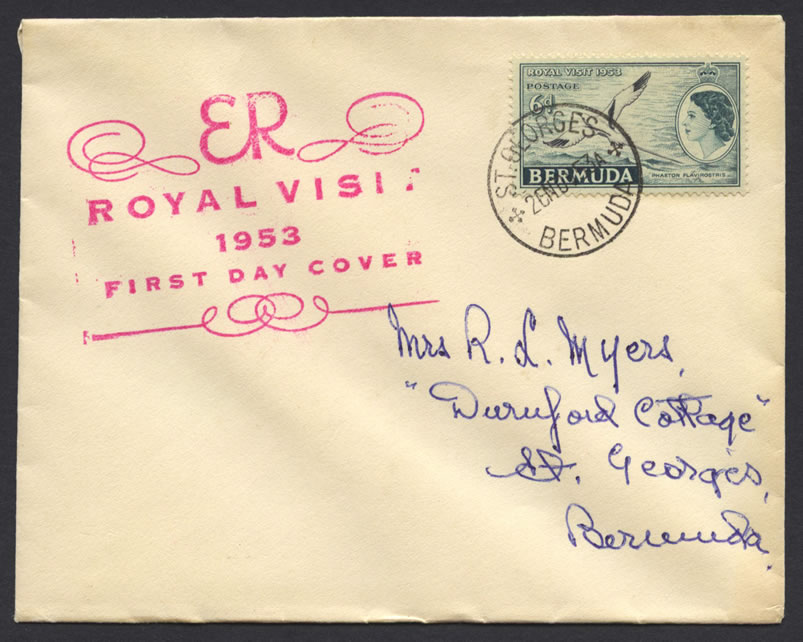 ER
ROYAL VISIT
1953
FIRST DAY COVER
ROYAL VISIT 1953
POSTAGE
6d
BERMUDA
PHAETON FLAVIROSTRIS
ST. GEORGES
BERMUDA
Mrs R. L. Myers,
"Durnford Cottage"
St. Georges,
Bermuda.